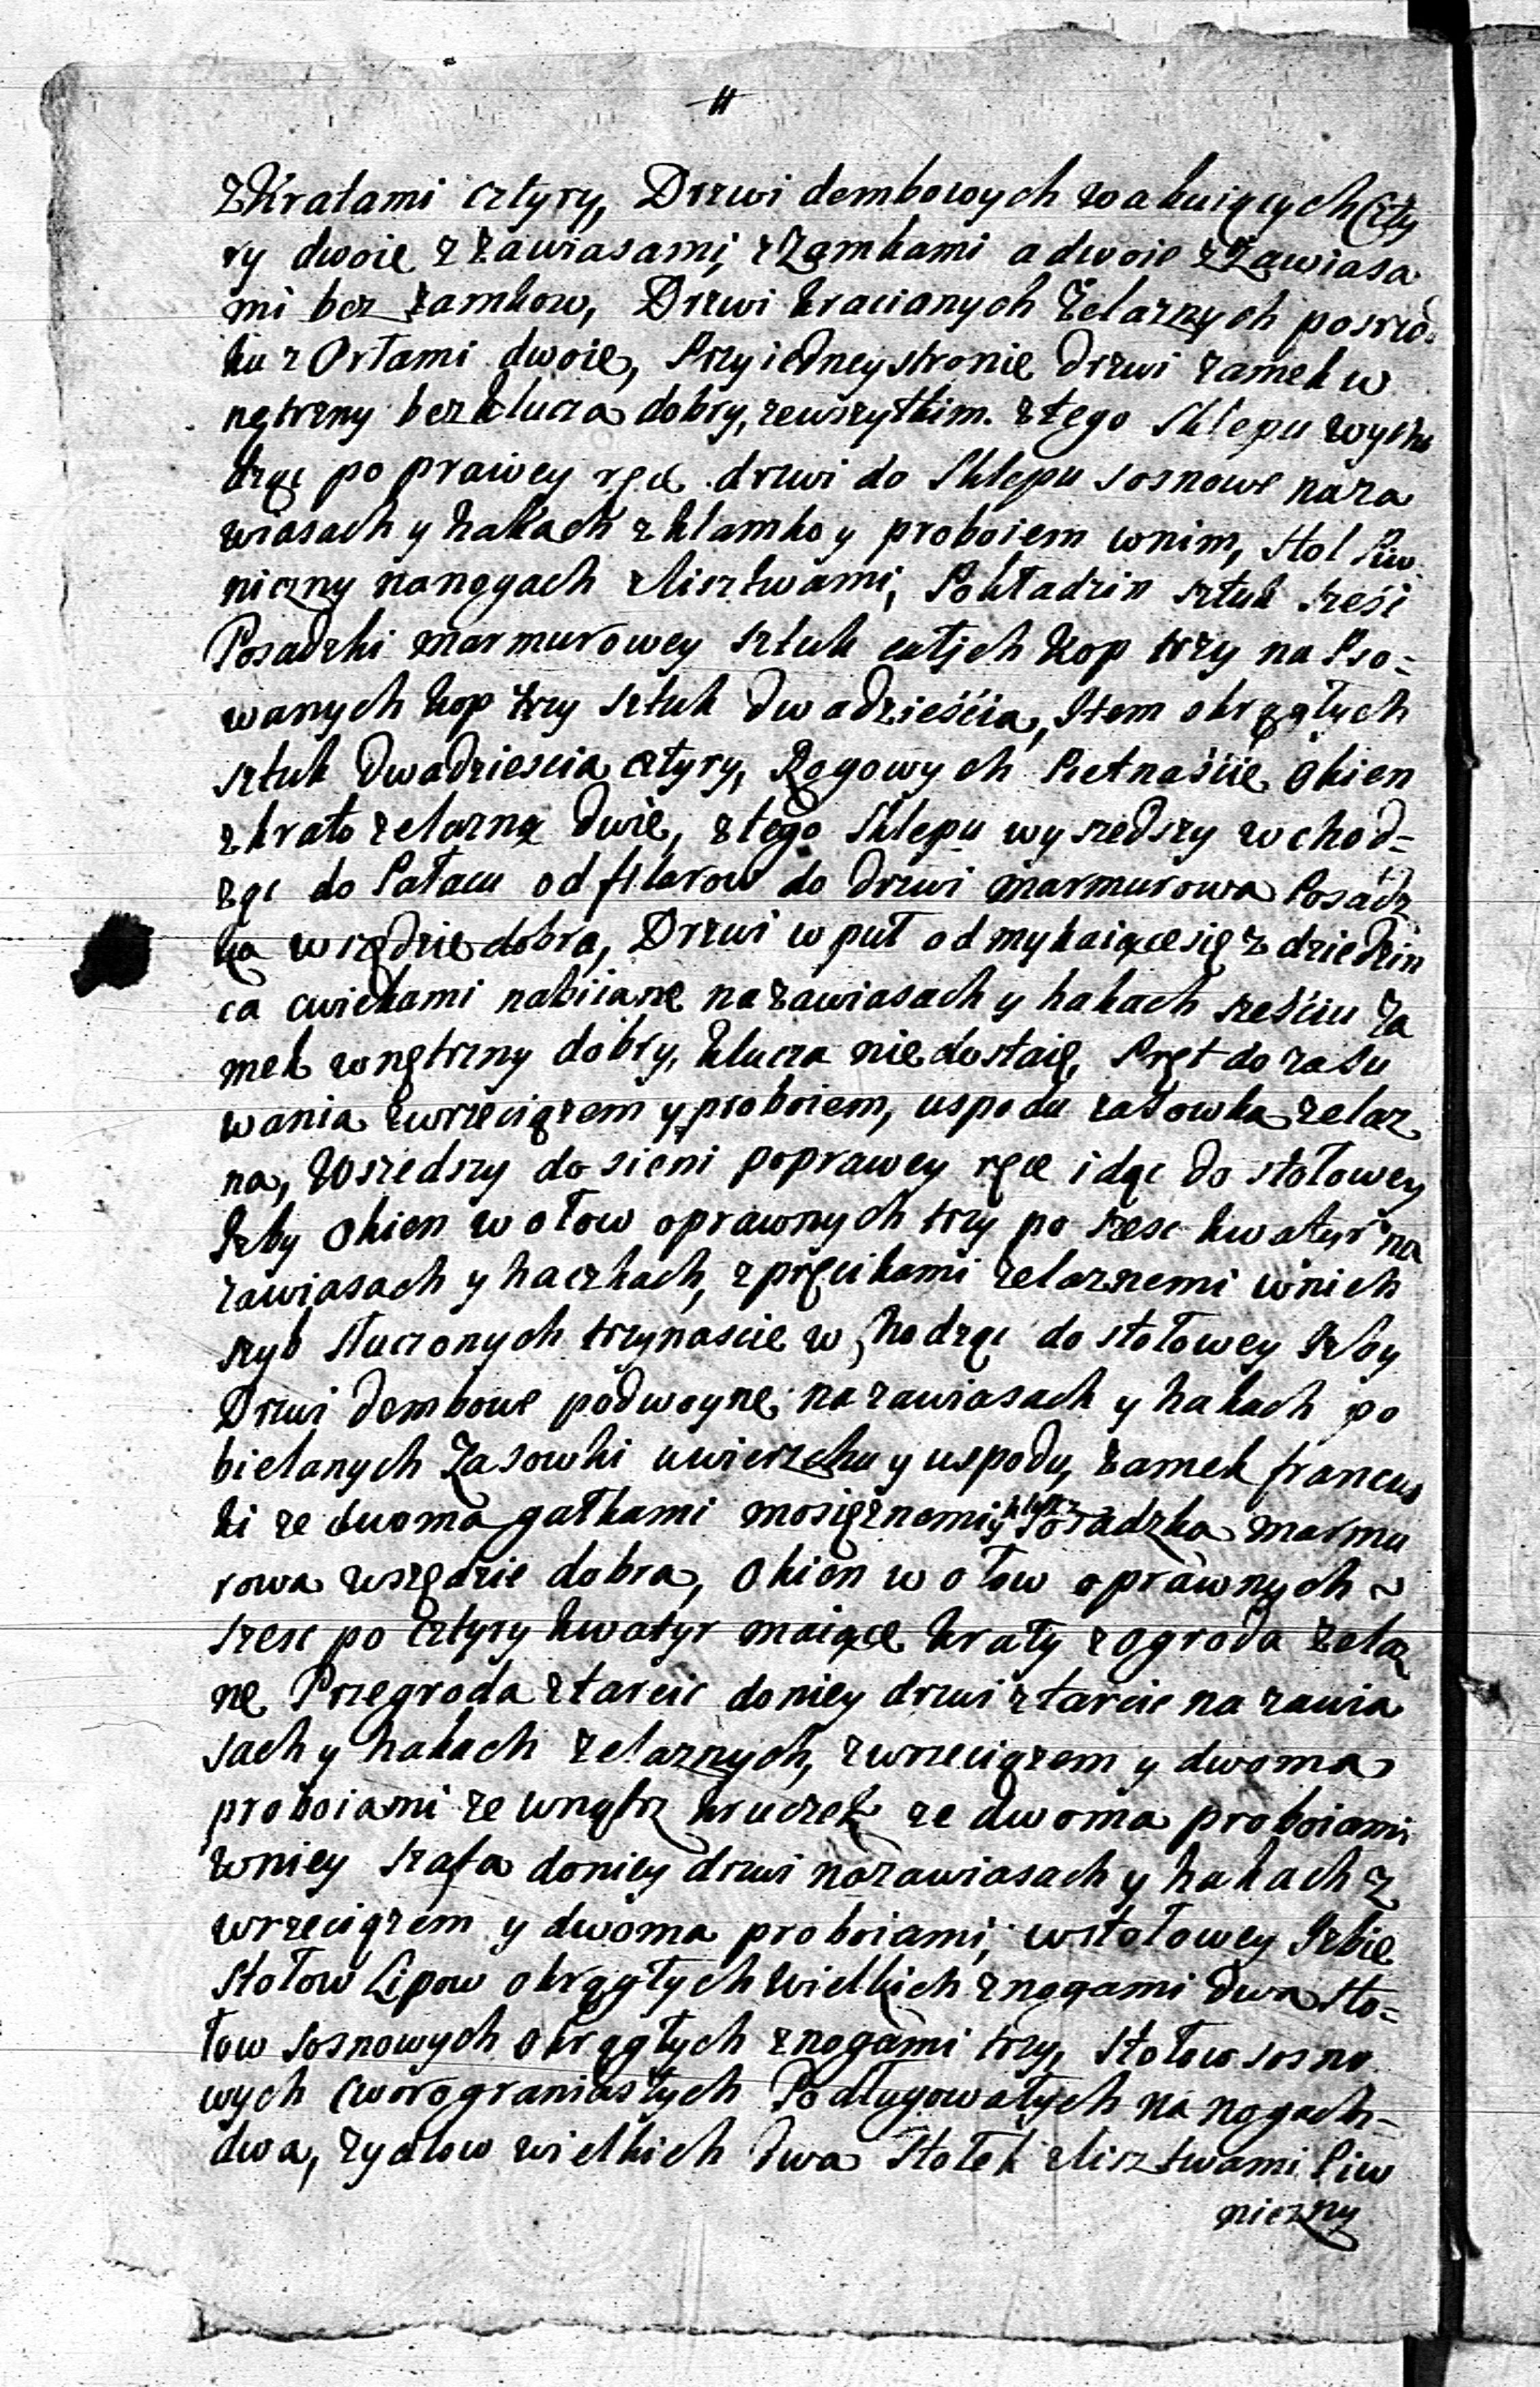 #
z Kratami cztyry, Drzwi dembowych wakuiących Czty
ry dwoie z zawiasami, z Zamkami a dwoie z Zawiasa
mi bez zamkow, Drzwi kracianych Żelaznych posrzo-
ku z Orłami dwoie, Przy iedney stronie drzwi zamek w
nętrzny bez klucza dobry, ze wszytkim. z tego Sklepu wycho
dząc po prawey ręce drzwi do Sklepu sosnowe na za
wiasach y hakach z klamko y proboiem w nim, Stol Piw
niczny na nogach z Lisztwami, Pokładzin sztuk sześć
Posadzki marmurowey sztuk całych kop trzy na Pso=
wanych kop trzy sztuk dwadzieścia, Item okrągłych
sztuk dwadziescia cztyry, Rogowych Pietnaście, Okien
z krato zelazną dwie, z tego Sklepu wyszedszy wchod=
ząc do Pałacu od filarow do drzwi marmurowa Posadz
ka wszędzie dobra, Drzwi w puł odmykaiące się z dziedzin
ca cwiekami nabiiane na zawiasach y hakach sześciu Za
mek wnętrzny dobry, klucza nie dostaie, Pręt do zasu
wania z wrzeciązem y proboiem, u spodu zasowka zelaz
na, Wszedszy do sieni po prawey ręce idąc do stołowey
Izby Okien w ołow oprawnych trzy po szesc kwatyr na
zawiasach y haczkach, z pręcikami zelaznemi w nich
szyb stuczonych trzynascie w chodząc do stołowey Izby
Drzwi dembowe podwoyne na zawiasach y hakach po
bielanych Zasowki u wierzchu y u spodu, zamek francus
ki ze dwoma gałkami mosiężnemi y klucz Posadzka marmu
rowa wszędzie dobra, Okien w ołow oprawnych ~
szesc po cztyry kwatyr maiące kraty z ogroda zelaz
ne Przegroda z tarcic do niey drzwi z tarcic na zawia
sach y hakach zelaznych, z wrzeciązem y dwoma
proboiami ze wnątrz kruczek ze dwoma proboiami
w niey szafa do niey drzwi na zawiasach y hakach z
wrzeciązem y dwoma proboiami, w stołowey Izbie
Stołow Lipow okrągłych wielkich z nogami dwa Sto=
łow sosnowych okrągłych z nogami trzy, Stołow sosno
wych czworograniastych Podługowatych na nogach=
dwa, zydlow wielkich dwa Stołek z Lisztwami Piw
niczny